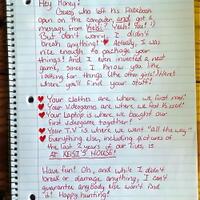 Hey Honey!
Guess who left his Facebook
open on the computer and got a
message from Keisi? Yeah! You!
But don't worry, I didn't
break anything! Actually, I was
nice enough to package your
things! And I even invented a neat
game, since I know you like
looking for things like other girls! Here's
where you'll find your stuff!
Your clothes are where we first met!
Your videogames are where we first kissed!
Your Laptop is where we bought our
first videogame together!
Your T.V is where we went "all the way"
Everything else, including pictures of
the last 2 years of our lives is
AT KEISI'S HOUSE!
Have fun! Oh, and while I didn't
break or damage anything, I can't
guarantee anybody else won't find
it! Happy hunting!